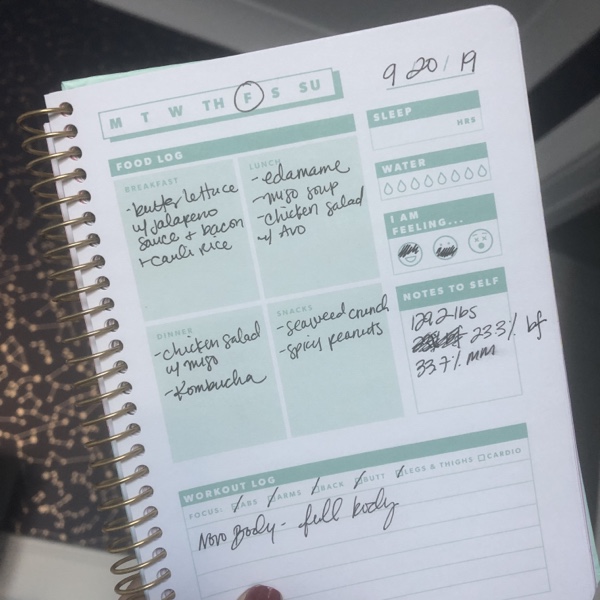 9/20/19
M T W TH F S SU
FOOD LOG
BREAKFAST
-butter lettuce
w/ jalapeno
sauce + bacon
+ cauli rice
LUNCH
-edamame
-miso soup
-chicken salad
w/ avo
DINNER
-chicken salad
w/ miso
-Kombucha
SNACKS
-seaweed crunch
-spicy peanuts
SLEEP
HRS
WATER
I AM
FEELING...
NOTES TO SELF
129.2 lbs
23.3% bf
33.7% mm
WORKOUT LOG
FOCUS: ABS ARMS BACK BUTT LEGS & THIGHS CARDIO
Novo Body - full body